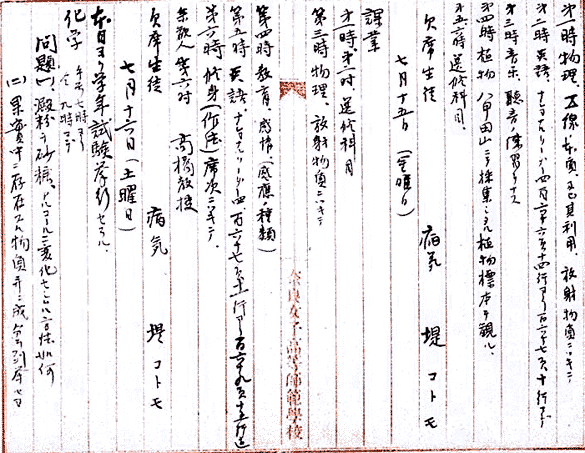 第一時物理、X線ノ本質、及ビ其利用、放射物質ニツキテ
第二時英語、ナショナルリーダー四 百六十六頁十四行ヨリ百六十七頁十行マデ
第三時音楽、聴音ノ練習ヲナス
第四時植物 八甲田山ニテ採集シタル植物標本ヲ観ル、
第五六時選修科目、
欠席生徒 病気 堤コトモ
七月十五日(金曜日)
課業
第一時、第二時、選修科目
第三時物理、放射物質ニツキテ
奈良女子高等師範學校
第四時教育、感情、(感應ノ種類)
第五時英語、ナショナルリーダー四 百六十七頁十一行ヨリ百六十九頁十五行迄
第六時修身(作法)席次ニツキテ、
参観人 第六時 高橋教授
欠席生徒 病気 堤コトモ
七月十六日(土曜日)
本日ヨリ学年試験挙行セラル、
化学 午前七時ヨリ 仝九時マデ
問題(一)澱粉ヲ砂糖、アルコールニ変化セシムル方法如何
(二)果實中ニ存在スル物質